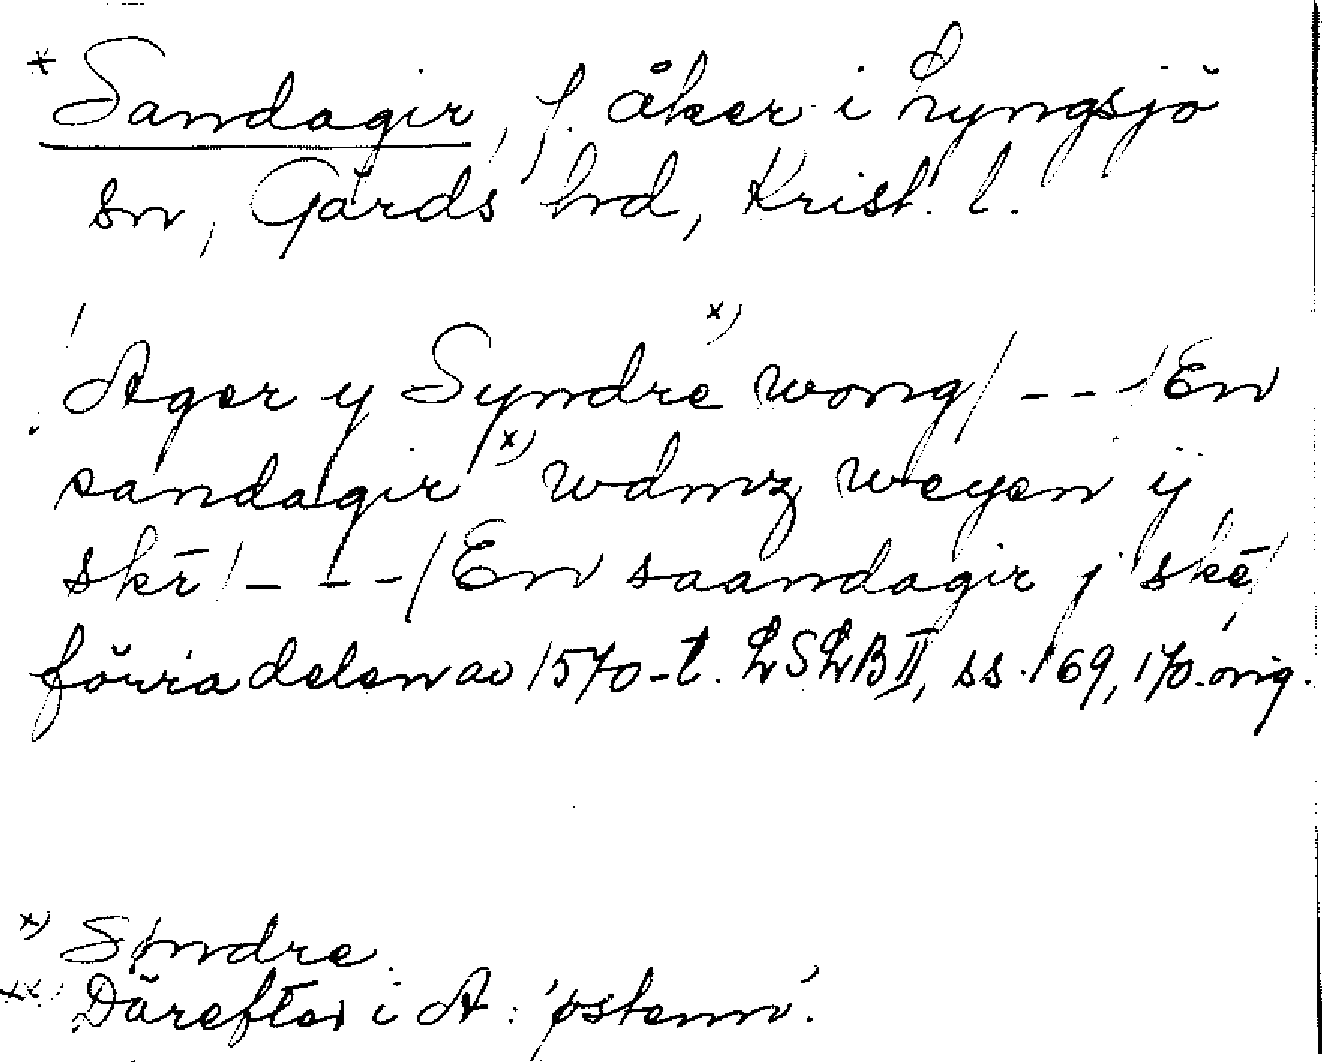 * Sandagir, f. åker i Lyngsjö
sn, Gärds hrd, Krist. l.
'Ager y Syndre x) wong/ - - -/ En
sandagir x) wdmz weyen ij
skē/ - - - / En saandagir j skē'
förra delen av 1570-t. LSLB II, ss. 169, 170. orig.
x) Søndre.
xx) Därefter i A: 'østenn'.